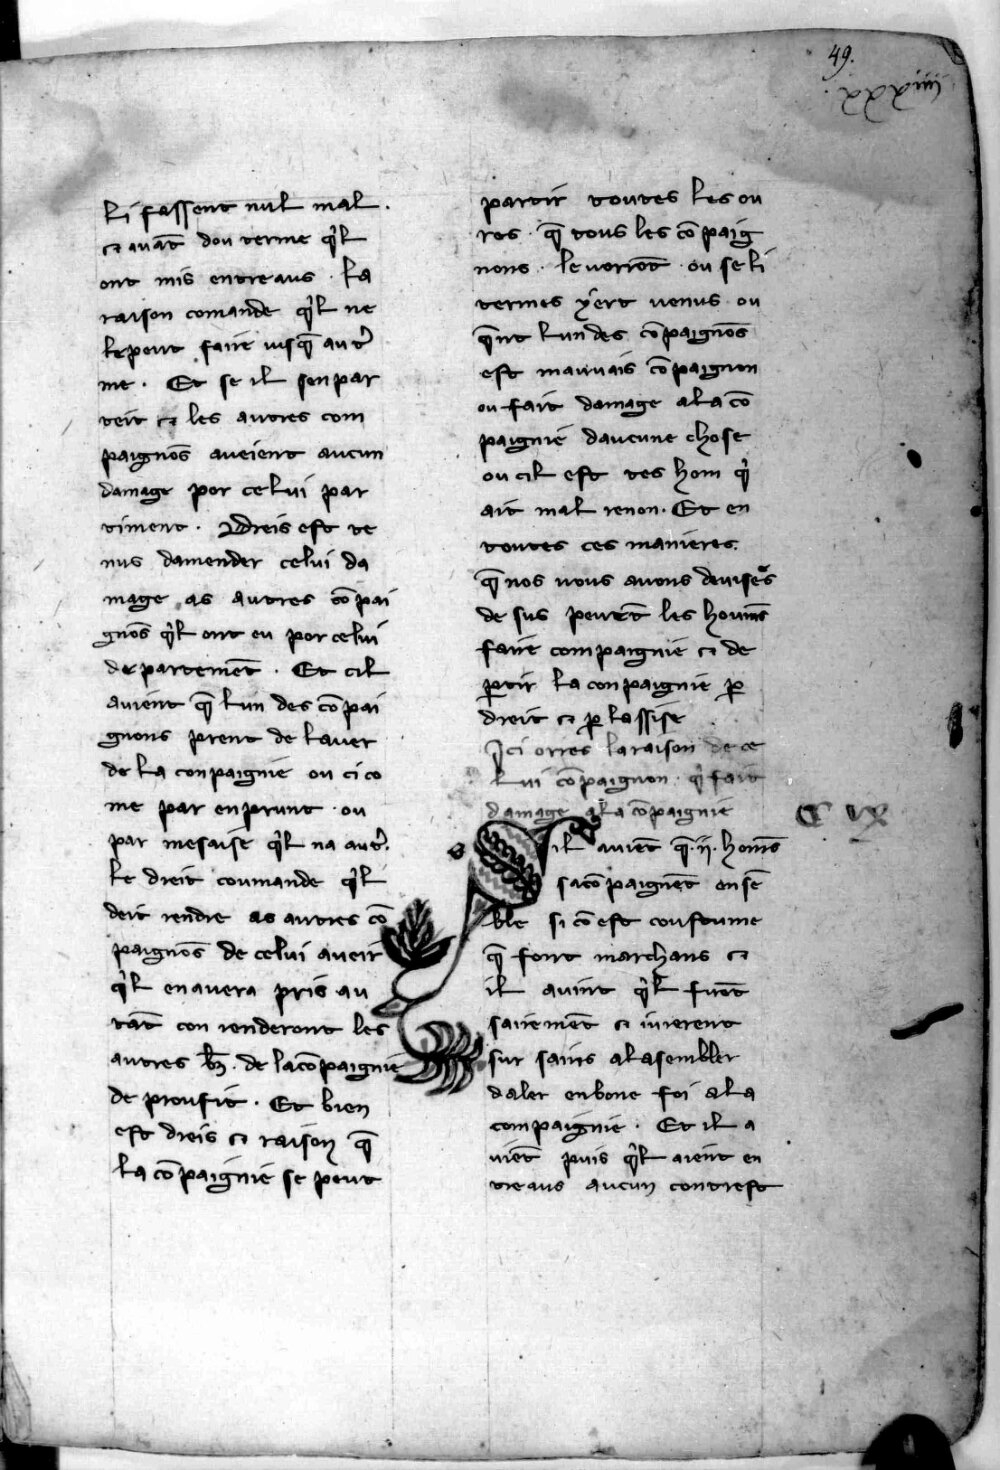 49.
xxxxiiii
li fassent nul mal.
⁊ auāt dou terme q̉l
ont mis entreaus. la
raison comande q̉l ne
lepeut faire iusq̄ aut̉
me. Et se il senpar
teit ⁊ les autres com
paignōs aueient aucun
damage por celui par
timent. Dreis est te
nus damender celui da
mage as autres cōpai
gnōs q̉l ont eu por celui
departemēt. Et cil
auient q̄ lun des cōpai
gnons prent de lauer
de la conpaignie ou ci co
me par enprunt. ou
par mesaise q̉l na aut̉.
le dreit coumande q̉l
deit rendre as autres cō
paignōs de celui aueir
q̉l enauera pris. au
tāt con renderont les
autres b̄z. de lacōpaignie
de proufit. Et bien
est dreis ⁊ raison q̄
la cōpaignie se peut
partir toutes les ou
res. q̄ tous les cōpaig
nons. le vorrōt. ou se li
termes yert venus. ou
q̄nt lun des cōpaignōs
est mauuais cōpaignon
ou fait damage a la cō
paignie daucune chose
ou cil est tes hom q̉
ait mal renon. Et en
toutes ces manieres.
q̄ nos vous auons deuises
de sus peuēt les houms̄
faire compaignie ⁊ de
ꝑtir la conpaignie ꝑ
dreit ⁊ ꝑ lassise
Ici orres laraison de ce
lui cōpaignon. q̉ fait
damage a la cōpaignie
S il auiēt q̄ .ii. homs̄
sacōpaignēt ensē
ble si cō est coustume
q̄ font marchans ⁊
il auint q̉l fuēt
sairemēt ⁊ iurerent
sur sains a lasembler
daler enbone foi a la
compaignie. Et il a
uiēt puis q̉l aient en
treaus aucun contrest